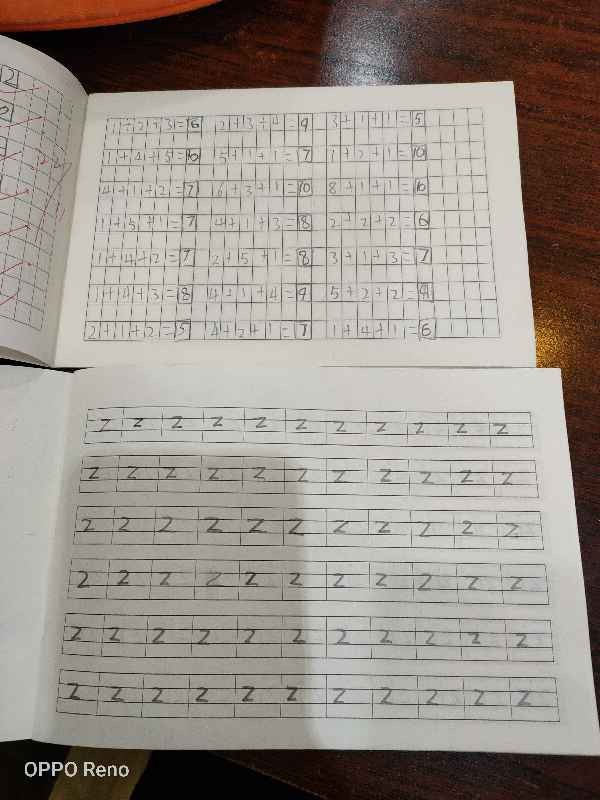 2
1+2+3=6 2+3+4=9 3+1+1=5
1+4+5=10 5+1+1=7 1+2+1=10
4+1+2=7 6+3+1=10 8+1+1=10
1+5+1=7 4+1+3=8 2+2+2=6
1+4+2=7 2+5+1=8 3+1+3=7
1+4+3=8 4+1+4=9 5+2+2=9
2+1+2=5 4+2+1=7 1+4+1=6
z z z z z z z z z z z
z z z z z z z z z z z
z z z z z z z z z z z
z z z z z z z z z z z
z z z z z z z z z z z
z z z z z z z z z z z
OPPO Reno